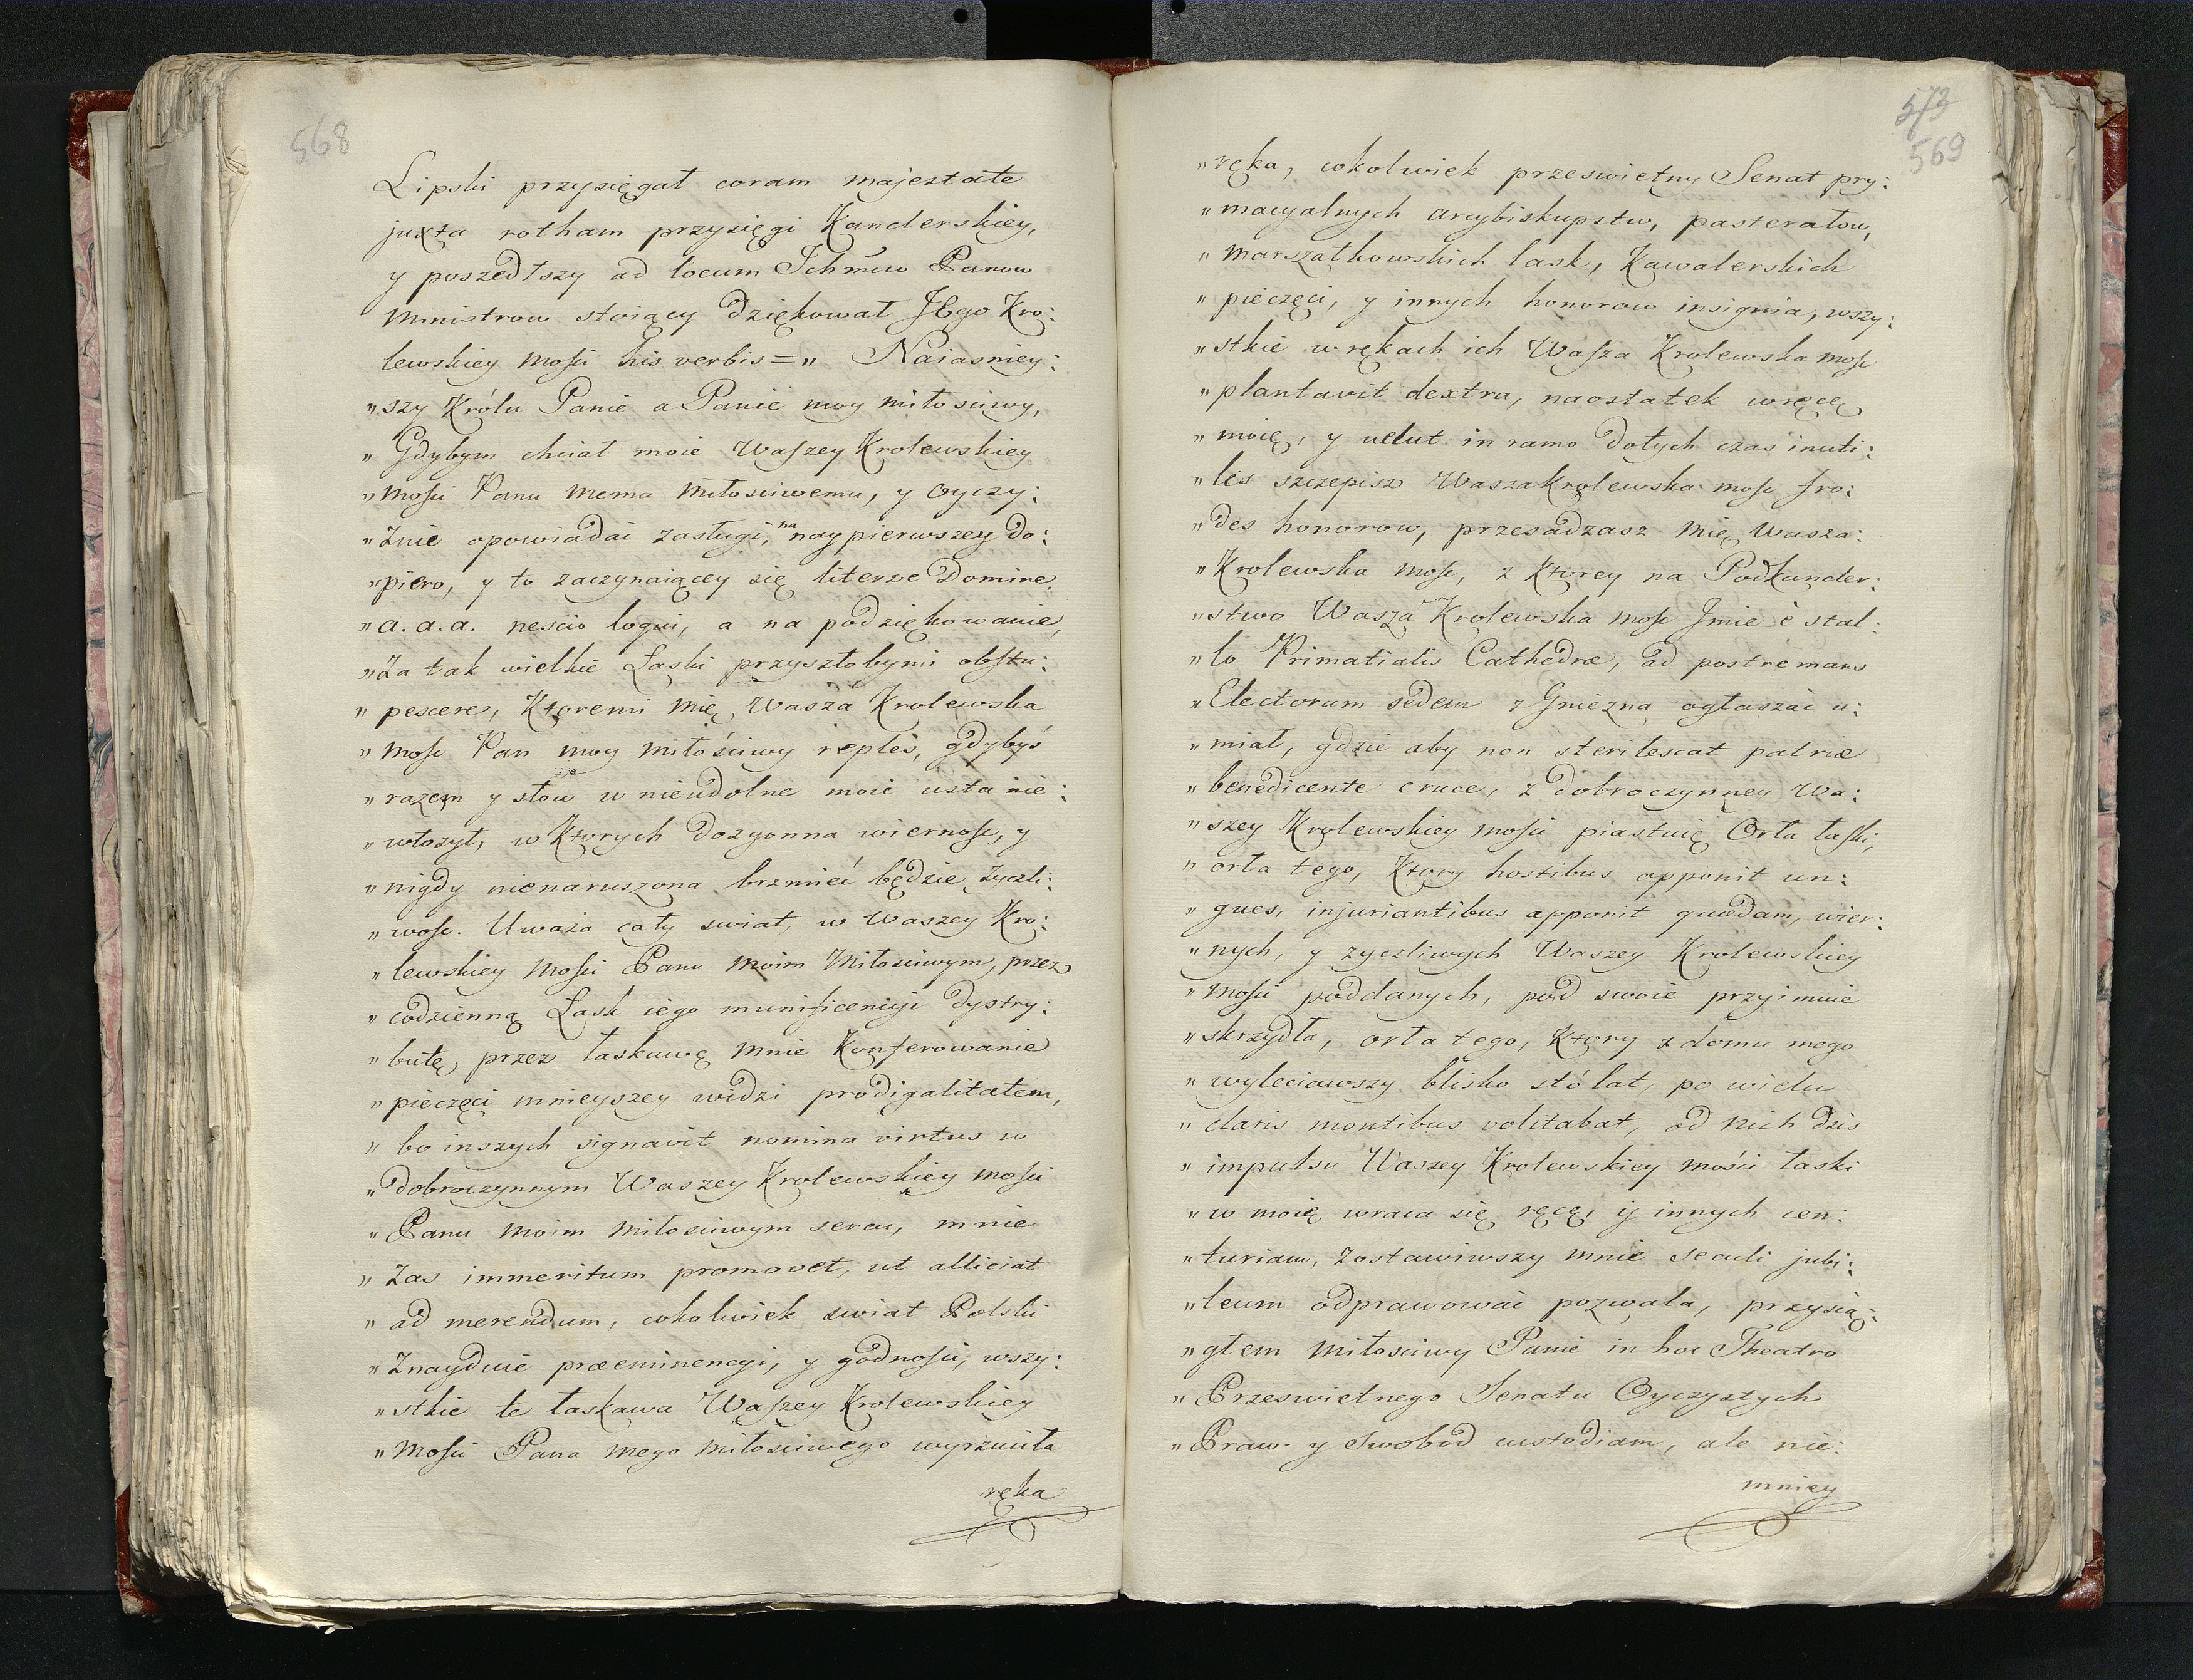 568
Lipski przysięgał coram majestate
juxta rotham przysięgi Kanclerskiey,
y poszedłszy ad locum Ichmciw Panow
Ministrow stoiący dziękował JEgo Kro:
lewskiey Mości his verbis = „ Naiasniey:
„szy Królu Panie a Panie moy miłosciwy,
„Gdybym chciał moie Waszey Krolewskiey
„Mości Panu memu Miłosciwemu, y Oyczy:
„znie opowiadać zasługi, na naypierwszey do:
„piero, y to zaczynaiącey się literze Domine
„a. a. a. nescio loqui, a na podziękowanie,
„Za tak wielkie Łaski przyszłobymi obstu:
„pescere, Ktoremi mię Wasza Krolewska
„Mość Pan moy miłościwy reples, gdybyś
„razem y słow w nieudolne moie usta nie:
„włożył, w Ktorych dozgonna wierność, y
„nigdy nienaruszona brzmieć będzie życzli:
„wość. Uważa cały swiat, w Waszey Kro:
„lewskiey Mości Panu Moim Miłosciwym, przez
„codzienną Łask iego munificencyi dystry:
„butę przez łaskawę mnie Konferowanie
„pieczęci mnieyszey widzi prodigalitatem,
„bo inszych signavit nomina virtus w
„dobroczynnym Waszey Krolewskiey mości
„Panu Moim Miłosciwym sercu, mnie
„Zas immeritum promovet, ut alliciat
„ad merendum, cokolwiek swiat Polski
„Znayduie præeminencyi, y godności, wszy:
„stkie te łaskawa Waszey Krolewskiey
„Mości Pana mego miłosciwego wyrzuciła
ręka
573
569
„ręka, cokolwiek przeswietny Senat pry:
„macyalnych arcybiskupstw, pasterałow,
„Marszałkowskich lask, Kawalerskich
„pieczęci, y innych honorow insignia, wszy:
„stkie w rękach ich Wasza Krolewska mość
„plantavit dextra, naostatek w ręcę
„moię, y velut in ramo dotych czas inuti:
„les szczepisz Wasza Krolewska mość fro:
„des honorow, przesadzasz mię Wasza:
„Krolewska mość, z Ktorey na Podkancler:
„stwo Wasza Krolewska mość Jmie è stal:
„lo Primatialis Cathedræ, ad postremam
„Electorum sedem z Gniezna ogłaszać u:
„miał, gdzie aby non sterilescat patriæ
„benedicente cruce, z dobroczynney Wa:
„szey Krolewskiey mości piastuię Orła łaski,
„orła tego, Ktory hostibus opponit un:
„gues, injuriantibus apponit quædam, wier:
„nych, y zyczliwych Waszey Krolewskiey
„Mości poddanych, pod swoie przyimuie
„skrzydła, orła tego, Ktory z domu mego
„wyleciawszy blisko stó lat, po wielu
„claris montibus volitabat, od nich dzis
„impulsu Waszey Krolewskiey mości łaski
„w moię wraca się ręcę, ij innych cen:
„turiam, zostawiwszy mnie seculi jubi:
„leum odprawować pozwala, przysią:
„głem miłosciwy Panie in hoc Theatro
„Przeswietnego Senatu Oyczystych
„Praw y Swobod custodiam, ale nie:
mniey